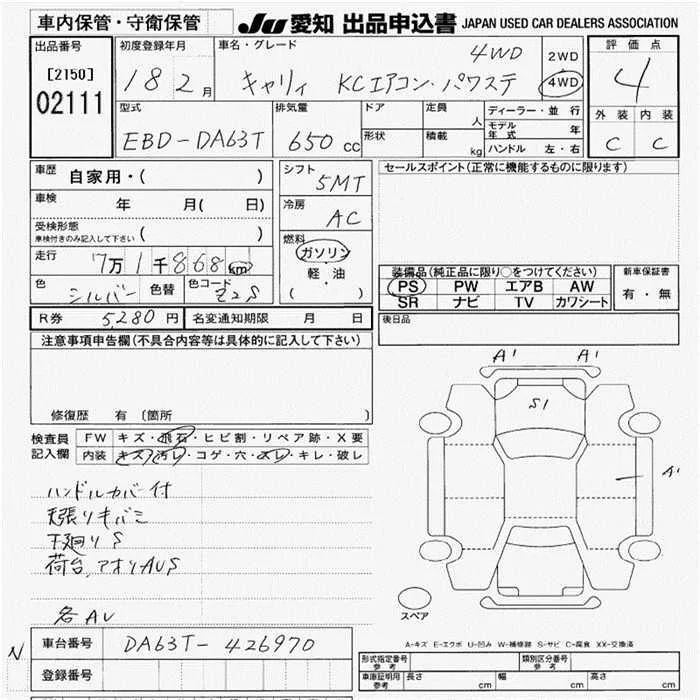 車内保管・守衛保管
JU 愛知 出品申込書 JAPAN USED CAR DEALERS ASSOCIATION
出品番号
[2150]
02111
初度登録年月
18 2 月
車名・グレード
4WD
キャリィ KCエアコン・パワステ
2WD
4WD
評価点
4
外装 内装
C C
型式
EBD-DA63T
排気量
650 cc
ドア
形状
定員
人
積載
kg
ディーラー・並 行
モデル年式 年
ハンドル 左・右
車歴
自家用・( )
車検
年 月( 日)
受検形態
車検付きのみ記入して下さい ( )
走行
7万 1千 868 km
色
シルバー
色替
色コード
Z2S
シフト
5MT
冷房
AC
燃料
ガソリン
軽・油
( )
セールスポイント(正常に機能するものに限ります)
装備品(純正品に限り○をつけてください)
PS PW エアB AW
SR ナビ TV カワシート
新車保証書
有・無
R券 5,280 円
名変通知期限 月 日
後日品
注意事項申告欄(不具合内容等は具体的に記入して下さい)
修復歴 有 〔箇所 〕
検査員記入欄
FW キズ・飛石・ヒビ割・リペア跡・X要
内装 キズ・汚レ・コゲ・穴・スレ・キレ・破レ
ハンドルカバー付
天張りキバミ
下廻りS
荷台、アオリAUS
各AU
A1
A1
S1
A1
スペア
A-キズ E-エクボ U-凹み W-補修跡 S-サビ C-腐食 XX-交換済
N
車台番号 DA63T-426970
登録番号
形式指定番号 参考
類別区分番号 参考
車庫証明用 参考
長さ cm
幅 cm
高さ cm